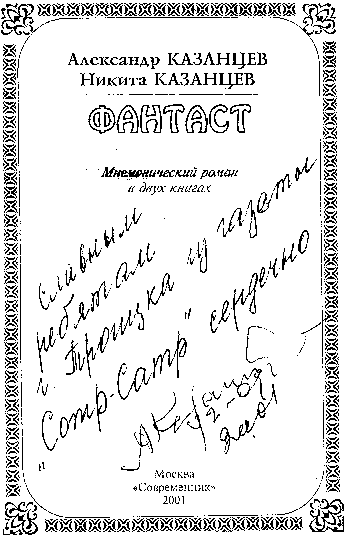 Александр КАЗАНЦЕВ
Никита КАЗАНЦЕВ
ФАНТАСТ
Мнемонический роман
в двух книгах
славным
ребятам
г. Троицка и газеты
"Сотр-Сатр" сердечно
АКазанц
Москва
«Современник»
2001